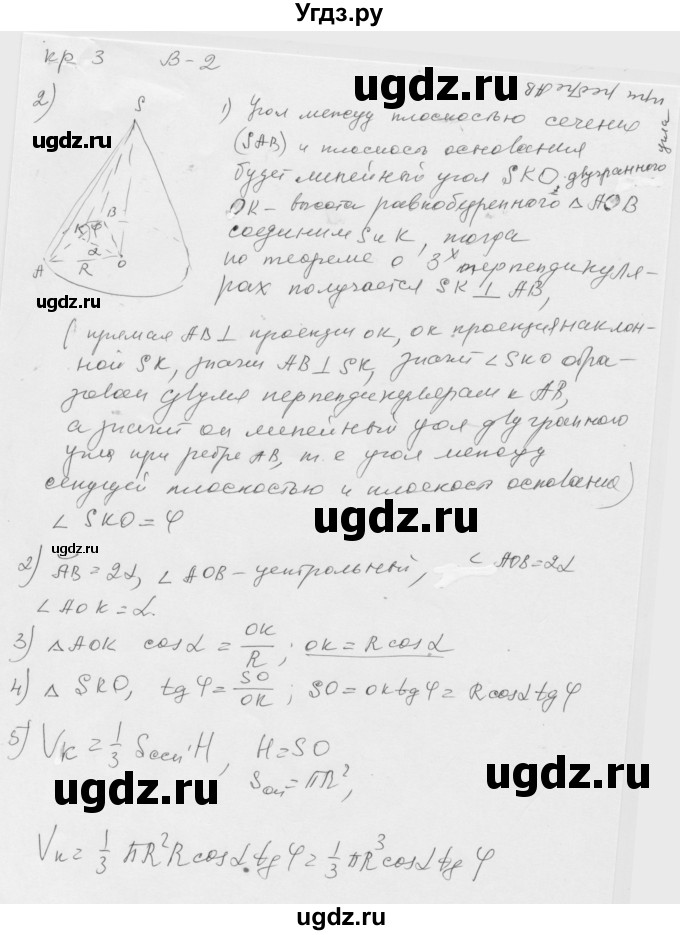 Угдз.ру
кр 3 В-2
ugdz.ru
при ребре АВ
2)
S
1) Угол между плоскостью сечения
ugdz.ru
(SAB) и плоскость основания
угла
будет линейный угол SKO двугранного
ugdz.ru
OK - высота равнобедренного △ AOB
соединим S и K, тогда
по теореме о 3х перпендикуля-
рах получается SK ⊥ AB,
K φ B
α
A R O
ugdz.ru
(прямая AB ⊥ проекции OK, OK проекция наклон-
ной SK, значит AB ⊥ SK, значит ∠SKO обра-
зован двумя перпендикулярами к AB,
а значит он линейный угол двугранного
угла при ребре AB, т. е угол между
секущей плоскостью и плоскость основания)
∠ SKO = φ
ugdz.ru
ugdz.ru
2) AB = 2α, ∠ AOB - центральный, ∠ AOB = 2α
∠ AOK = α.
3) △ AOK cos α = OK/R ; OK = R cos α
4) △ SKO, tg φ = SO/OK ; SO = OK tg φ = R cos α tg φ
5) Vк = 1/3 Sосн · H, H = SO
Sосн = πR²,
ugdz.ru
ugdz.ru
Vк = 1/3 πR² R cos α tg φ = 1/3 πR³ cos α tg φ
ugdz.ru
ugdz.ru